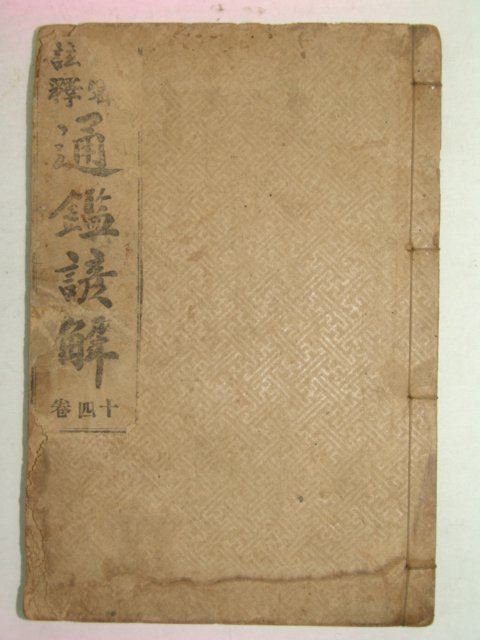 註釋
通鑑諺解
十四卷